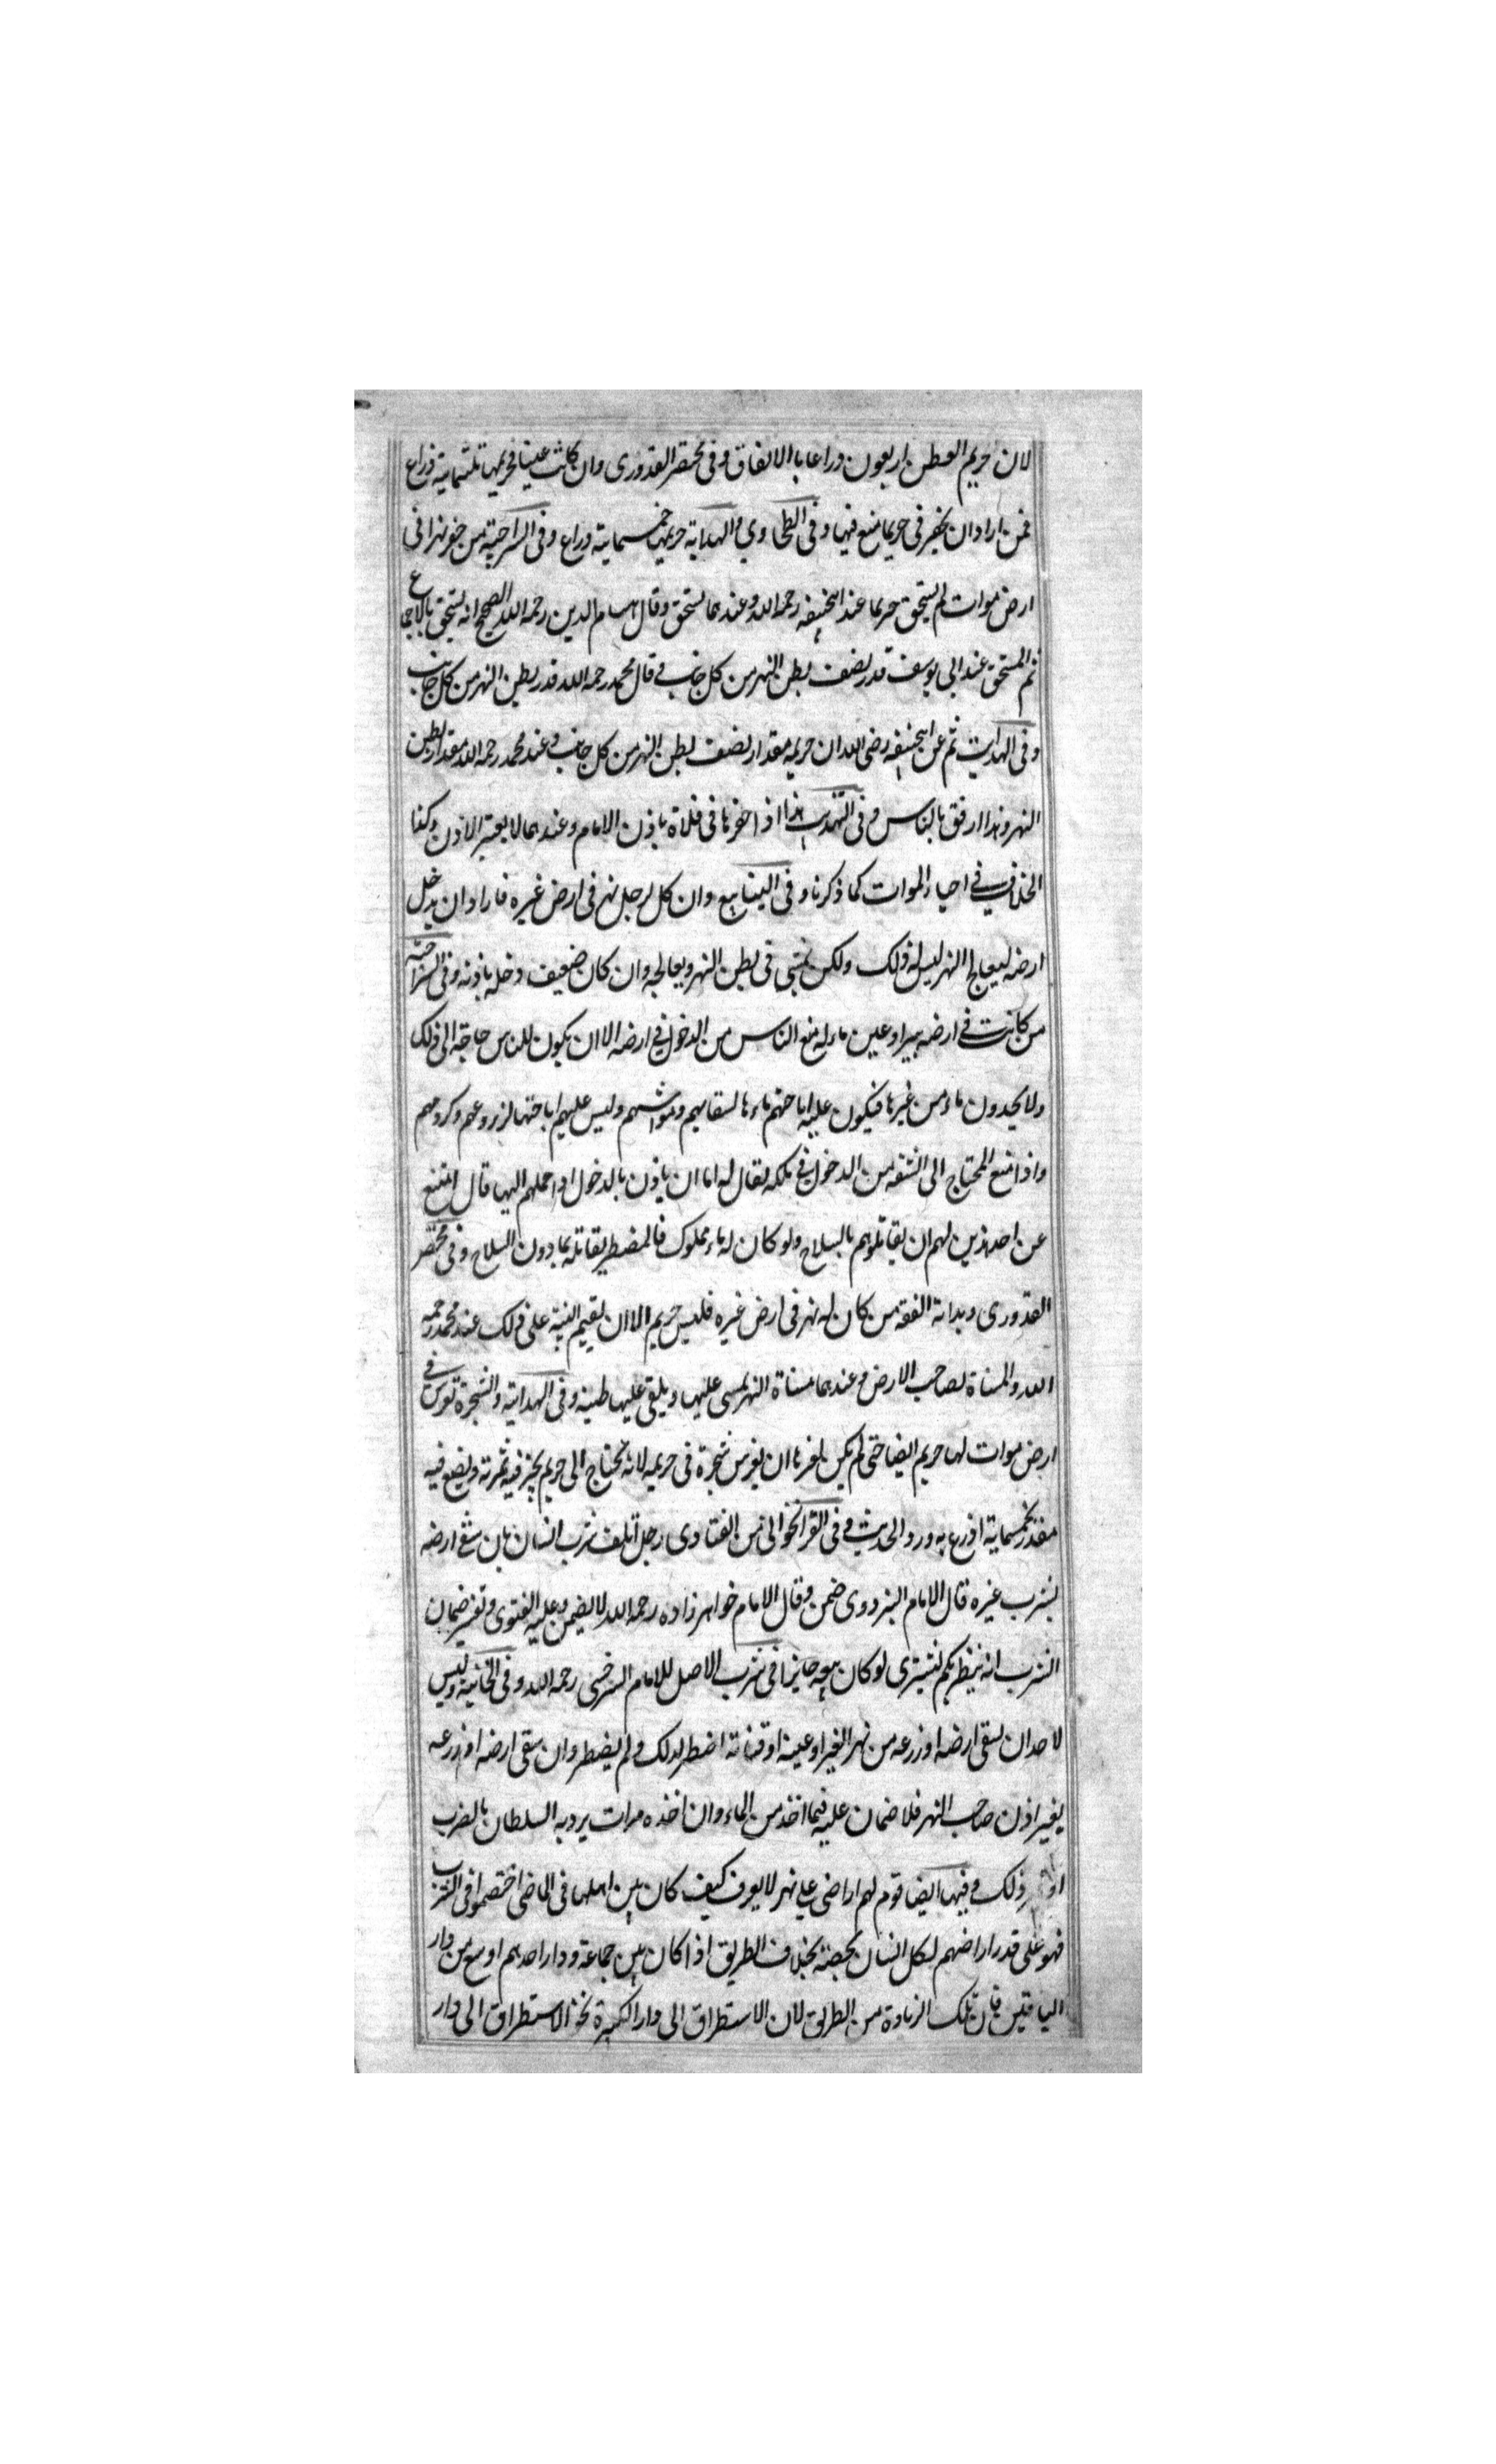 لان حريم العطن اربعون ذراعا بالاتفاق وفى مختصر القدورى وان كانت عينا فحريمها ثلثماية ذراع
فمن اراد ان يحفر فى حريما منع فيها وفى الطحاوي والهداية حريمها خمسماية ذراع وفى السراجية من حفر نهرا فى
ارض موات لم يستحق حريما عند ابيحنيفه رحمه الله وعندهما يستحق وقال حسام الدين رحمه الله الصحيح انه يستحق بالاجماع
ثم المستحق عند ابى يوسف قدر نصف بطن النهر من كل جانب وقال محمد رحمه الله قدر بطن النهر من كل جانب
وفى الهداية ثم عن ابيحنيفه رضى الله ان حريمه مقدار نصف بطن النهر من كل جانب وعند محمد رحمه الله مقدار بطن
النهر وهذا ارفق بالناس وفى التهذيب هذا اذا حفرنا فى فلاة باذن الامام وعندهما لا يعتبر الاذن وكذا
الخلاف فى احياء الموات كما ذكرنا وفى الينابيع وان كل لرجل نهر فى ارض غيره فاراد ان يدخل
ارضه ليعالج النهر ليس له ذلك ولكن يمشى فى بطن النهر ويعالجه وان كان ضعيف دخله باذنه وفى السراجية
من كانت فى ارضه بيرا وعين ماء له منع الناس من الدخول فى ارضه الا ان يكون للناس حاجة الى ذلك
ولا يجدون ماء من غيرها فيكون عليه اباحتهم ماءها لسقايهم ومواشيهم وليس عليهم اباحتها لزروعهم وكرومهم
واذا منع المحتاج الى الشفه من الدخول فى ملكه يقال له اما ان ياذن بالدخول او احملهم اليها قال امتنع
عن احد هذين لهم ان يقاتلوهم بالسلاح ولو كان له ماء مملوك فالمضطر يقاتله بما دون السلاح وفى مختصر
القدورى وبداية الفقه من كان له نهر فى ارض غيره فليس حريم الا ان يقيم البينة على ذلك عند محمد رحمه
الله والمسناة لصاحب الارض وعندهما مسناة النهر يمسى عليها ويلقى عليها طينه وفى الهداية والشجرة تغرس فى
ارض موات لها حريم ايضا حتى لم يكن لغرنا ان يغرس شجرة فى حريمه لانه يحتاج الى حريم يجز فيه ثمرته ويضع فيه
مقدر بخمسماية اذرع به ورد الحديث وفى القراخوانى من الفتاوى رجل اتلف شرب انسان بان سقى ارضه
بشرب غيره قال الامام البزدوى ضمن وقال الامام خواهر زاده رحمه الله لا يضمن وعليه الفتوى وتفسير ضمان
الشرب انه ينظر بكم تشترى لو كان بيعه جايزا فى شرب الاصل للامام السرخسى رحمه الله وفى الخانية وليس
لاحد ان يسقى ارضه او زرعه من نهر الغير او عينه او قناته اضطر لذلك ولم يضطر وان سقى ارضه او زرعه
بغير اذن صاحب النهر فلا ضمان عليه فيما اخذ من الماء وان اخذه مرات يردبه السلطان بالضرب
ذلك وفيها ايضا قوم لهم اراضى على نهر لا يعرف كيف كان بين اهلها فى الماضى اختصموا فى الشرب
فهو على قدر اراضهم لكل انسان بحصته بخلاف الطريق اذا كان بين جماعة ودار احدهم اوسع من دار
الباقين فان تلك الزيادة من الطريق لان الاستطراق الى دار الكبيرة نحو الاستطراق الى دار